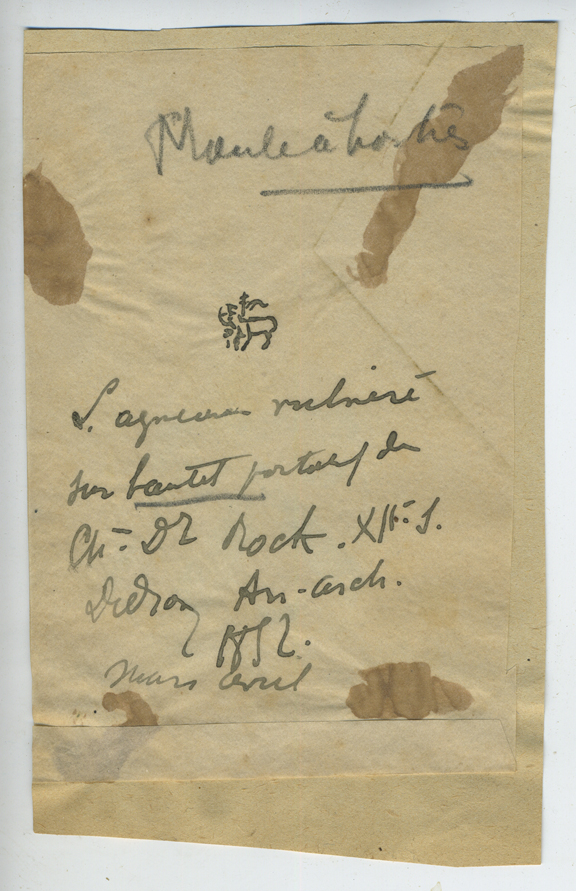 Moule à hosties
L'agneau vulnéré
sur l'autel portatif du
Ch. Dr Rock. XIIe. S.
Didron An-arch.
1852.
Mars avril